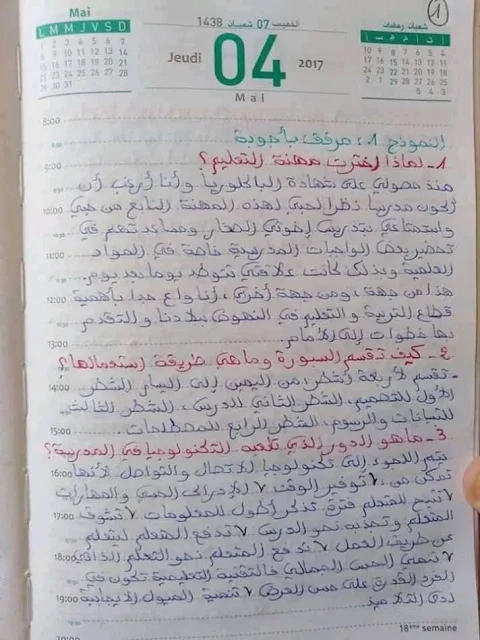 Mai
L M M J V S D
الخميس 07 شعبان 1438
Jeudi 04 2017
Mai
شعبان، رمضان
1
8:00
النموذج 1: مرفق بأجوبة
9:00
1- لماذا اخترت مهنة التعليم؟
منذ حصولي على شهادة الباكلوريا وأنا أرغب أن
10:00
أكون مدرسا نظرا لحبي لهذه المهنة النابع من حبي
واستمتاعي بتدريس إخوتي الصغار ومساعدتهم في
11:00
تحضير بعض الواجبات المدرسية خاصة في المواد
العلمية وبذلك كانت علاقتي تتوطد يوما بعد يوم.
12:00
هذا من جهة، ومن جهة أخرى، أنا واع جدا بأهمية
قطاع التربية والتعليم في النهوض ببلادنا والتقدم
13:00
بها خطوات إلى الأمام.
2- كيف تقسم السبورة وما هي طريقة استعمالها؟
14:00
- تقسم لأربعة أشطر: من اليمين إلى اليسار الشطر
الأول للتصميم، الشطر الثاني للدرس، الشطر الثالث
15:00
للبيانات والرسوم، الشطر الرابع للمصطلحات.
3- ما هو الدور الذي تلعبه التكنولوجيا في المدرسة؟
16:00
يتم اللجوء إلى تكنولوجيا الاتصال والتواصل لأنها
تمكن من: ٧ توفير الوقت ٧ الإدراك الحسي والمهارات
17:00
٧ تتيح للمتعلم فترة تذكر أطول للمعلومات ٧ تشوق
المتعلم وتجذبه نحو الدرس ٧ تدفع المتعلم ليتعلم
18:00
عن طريق العمل ٧ تدفع المتعلم نحو التعلم الذاتي
٧ تنمي الحس الجمالي فالتقنية التعليمية تكون في
19:00
القدرة على حسن العرض ٧ تنمية الميول الإيجابية
لدى التلاميذ.
18ème semaine